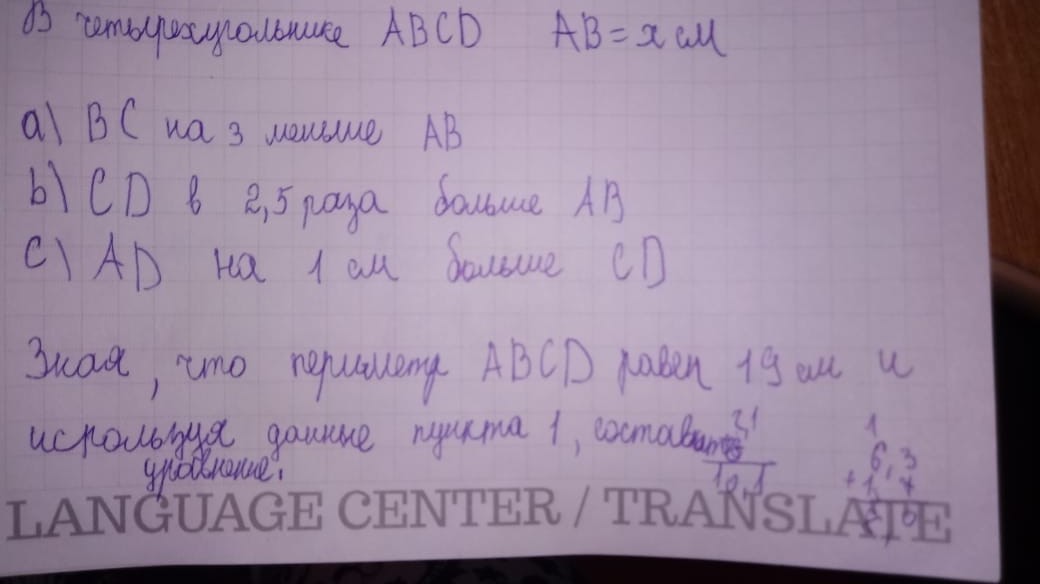 В четырехугольнике ABCD AB = x см
a) BC на 3 меньше AB
b) CD в 2,5 раза больше AB
c) AD на 1 см больше CD
Зная, что периметр ABCD равен 19 см и
используя данные пункта 1, составить
уравнение.
LANGUAGE CENTER / TRANSLATE